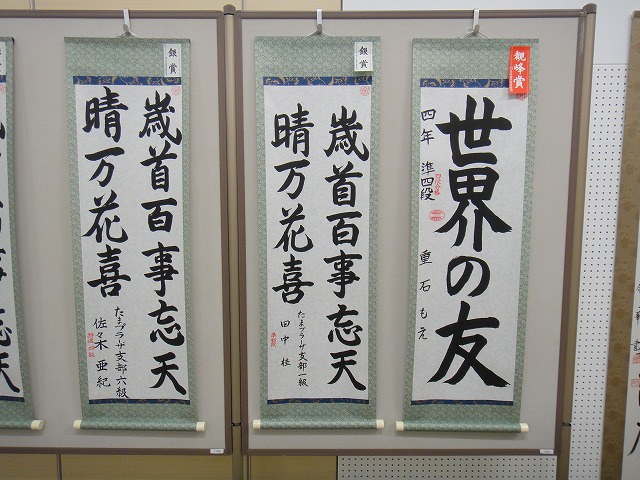 親峰賞
世界の友
四年 準四段
重石もえ
銀賞
歳首百事忘天
晴万花喜
たまプラーザ支部一級
田中 桂
銀賞
歳首百事忘天
晴万花喜
たまプラーザ支部六級
佐々木 亜紀